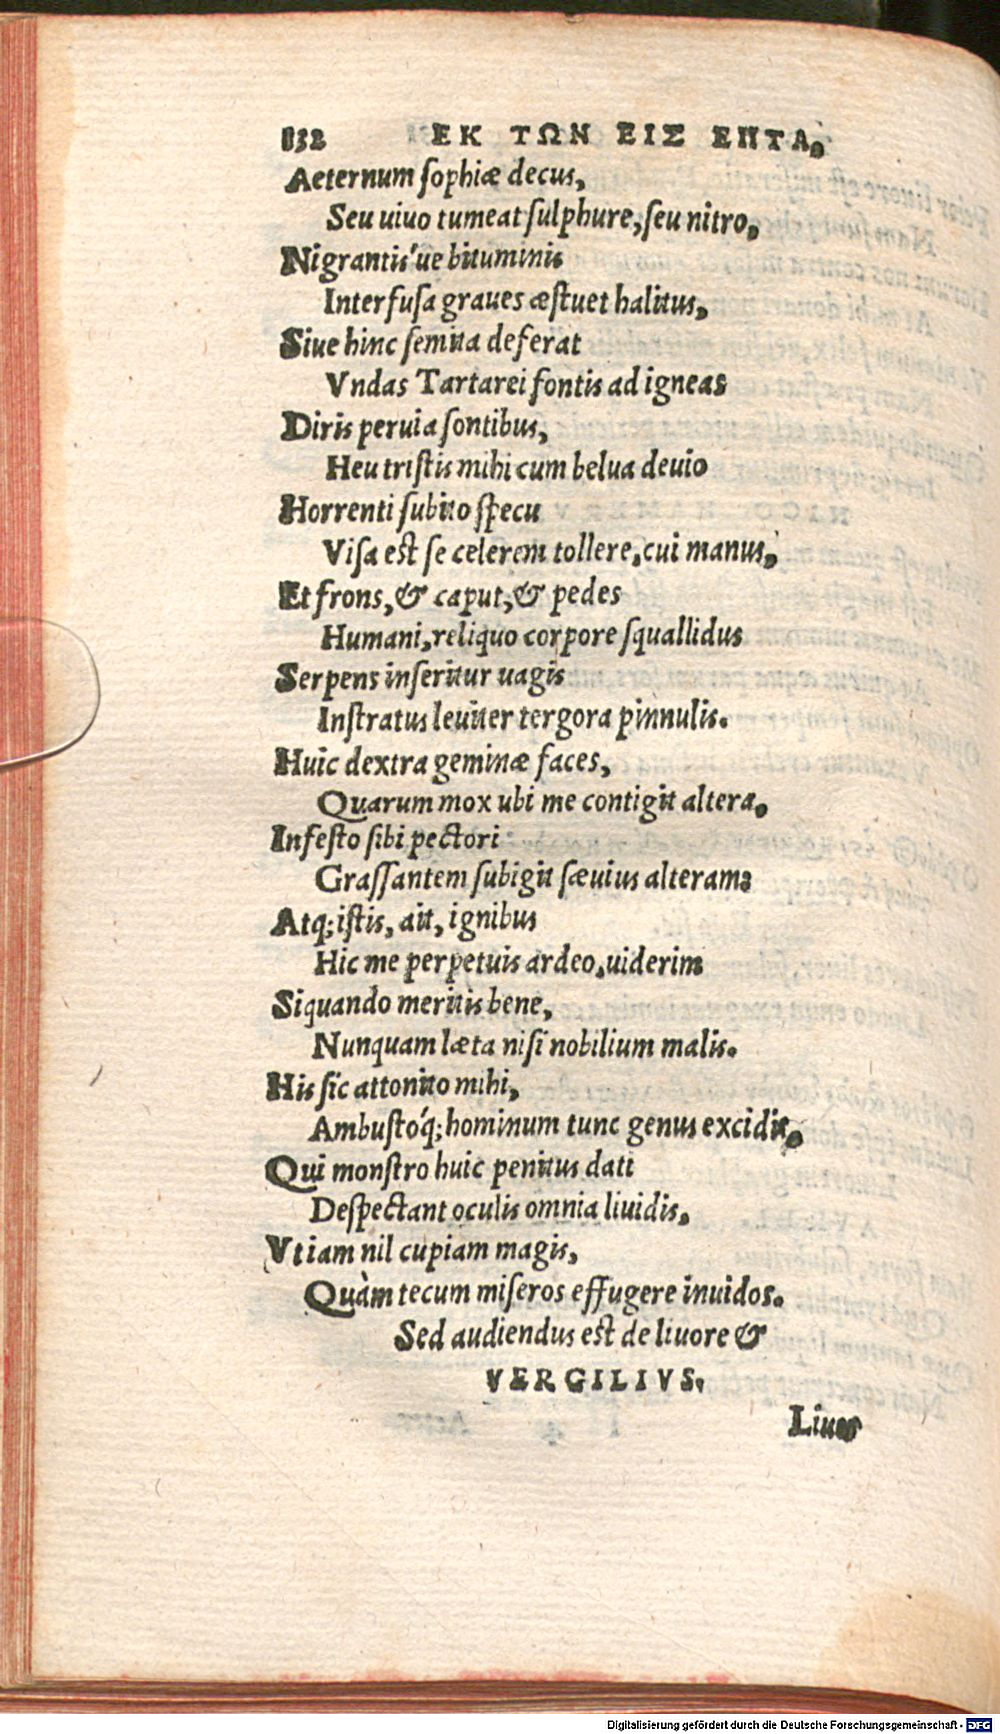 132 ΕΚ ΤΩΝ ΕΙΣ ΕΠΤΑ.
Aeternum sophiæ decus,
Seu uiuo tumeat sulphure, seu nitro,
Nigrantis'ue bituminis
Interfusa graues æstuet halitus,
Siue hinc semita deferat
Vndas Tartarei fontis ad igneas
Diris peruia sontibus,
Heu tristis mihi cum belua deuio
Horrenti subito specu
Visa est se celerem tollere, cui manus,
Et frons, & caput, & pedes
Humani, reliquo corpore squallidus
Serpens inseritur uagis
Instratus leuiter tergora pinnulis.
Huic dextra geminæ faces,
Quarum mox ubi me contigit altera,
Infesto sibi pectori
Grassantem subigit sæuius alteram:
Atq; istis, ait, ignibus
Hic me perpetuis ardeo, uiderim
Siquando meritis bene,
Nunquam læta nisi nobilium malis.
His sic attonito mihi,
Ambusto'q; hominum tunc genus excidit,
Qui monstro huic penitus dati
Despectant oculis omnia liuidis,
Vtiam nil cupiam magis,
Quàm tecum miseros effugere inuidos.
Sed audiendus est de liuore &
VERGILIVS.
Liuor
Digitalisierung gefördert durch die Deutsche Forschungsgemeinschaft - DFG